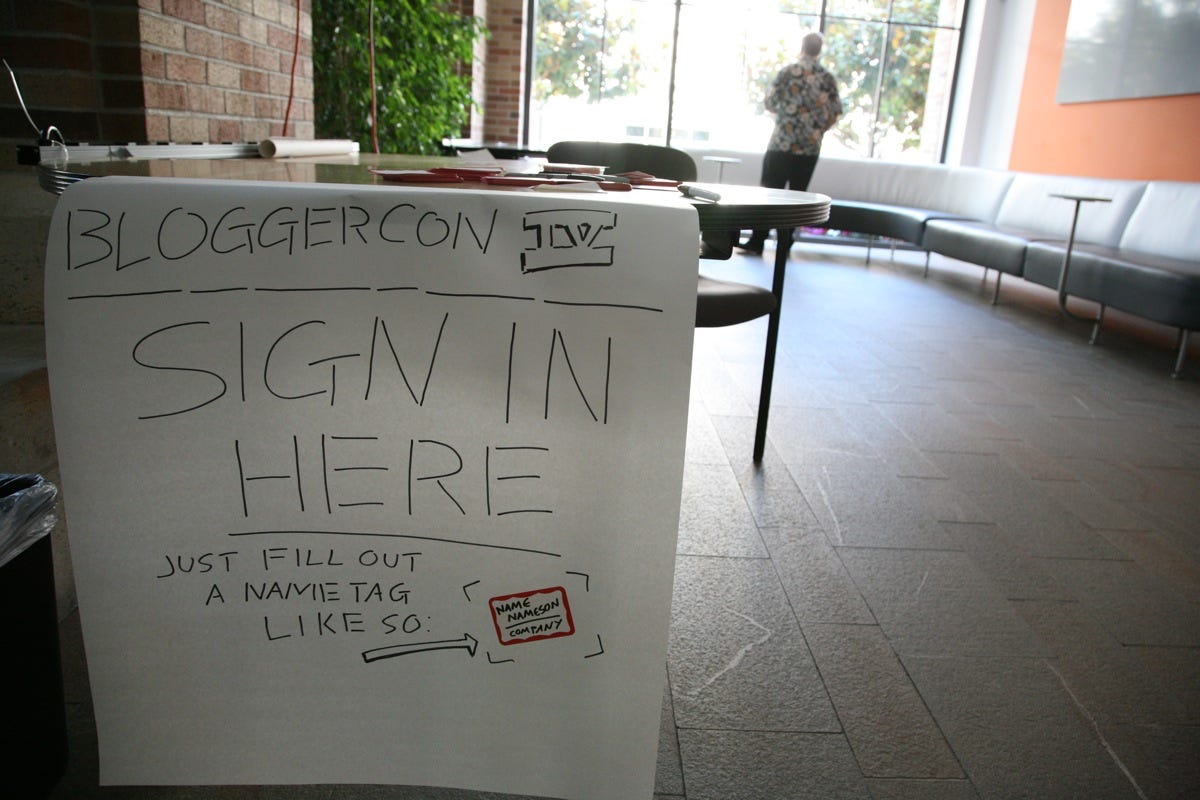 BLOGGERCON IV
SIGN IN
HERE
JUST FILL OUT
A NAME TAG
LIKE SO:
NAME
NAMESON
COMPANY